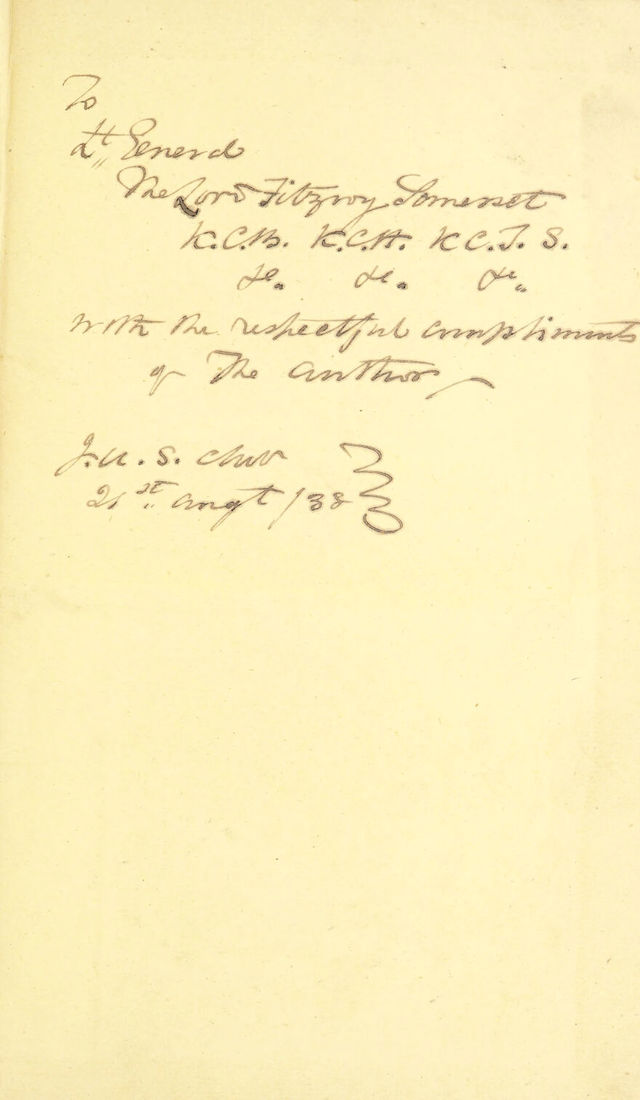 To
Lt General
The Lord Fitzroy Somerset
K.C.B. K.C.H. K C.T. S.
&c. &c. &c.
with the respectful compliments
of The Author
J.U.S. Club
21st Augt /38